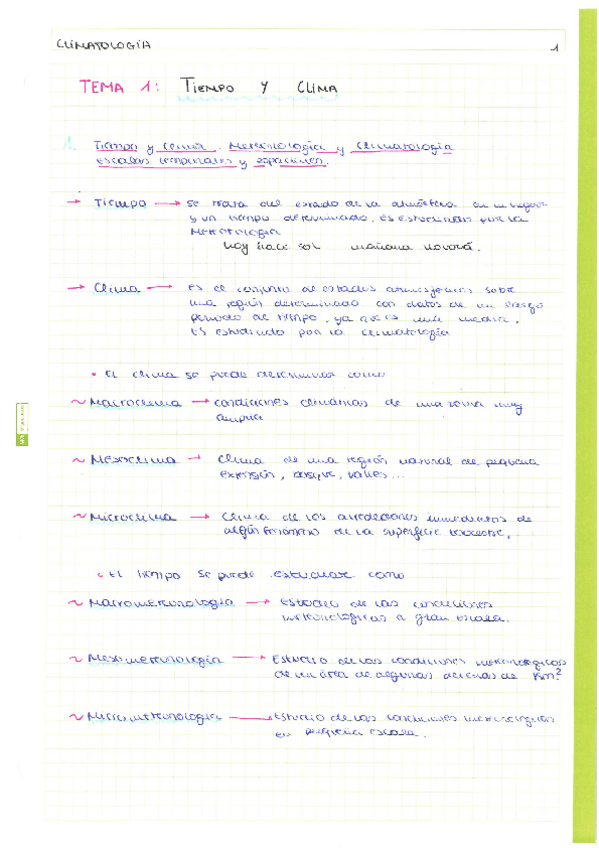 CLIMATOLOGÍA 1
TEMA 1: TIEMPO Y CLIMA
1. Tiempo y clima. Meteorología y Climatología
escalas temporales y espaciales.
→ Tiempo → se trata del estado de la atmósfera en un lugar
y un tiempo determinado, es estudiado por la
Meteorología
hoy hace sol mañana lloverá.
→ Clima → Es el conjunto de estados atmosféricos sobre
una región determinado con datos de un largo
periodo de tiempo, ya que es una media.
Es estudiado por la climatología
• El clima se puede determinar como
~ Macroclima → condiciones climáticas de una zona muy
amplia
~ Mesoclima → Clima de una región natural de pequeña
extensión, bosque, valles...
~ Microclima → Clima de los alrededores inmediatos de
algún fenómeno de la superficie terrestre.
• El tiempo se puede estudiar como
~ Macrometeorología → Estudio de las condiciones
meteorológicas a gran escala.
~ Mesometeorología → Estudio de las condiciones meteorológicas
de un área de algunas decenas de Km²
~ Micrometeorología → Estudio de las condiciones meteorológicas
en pequeña escala.